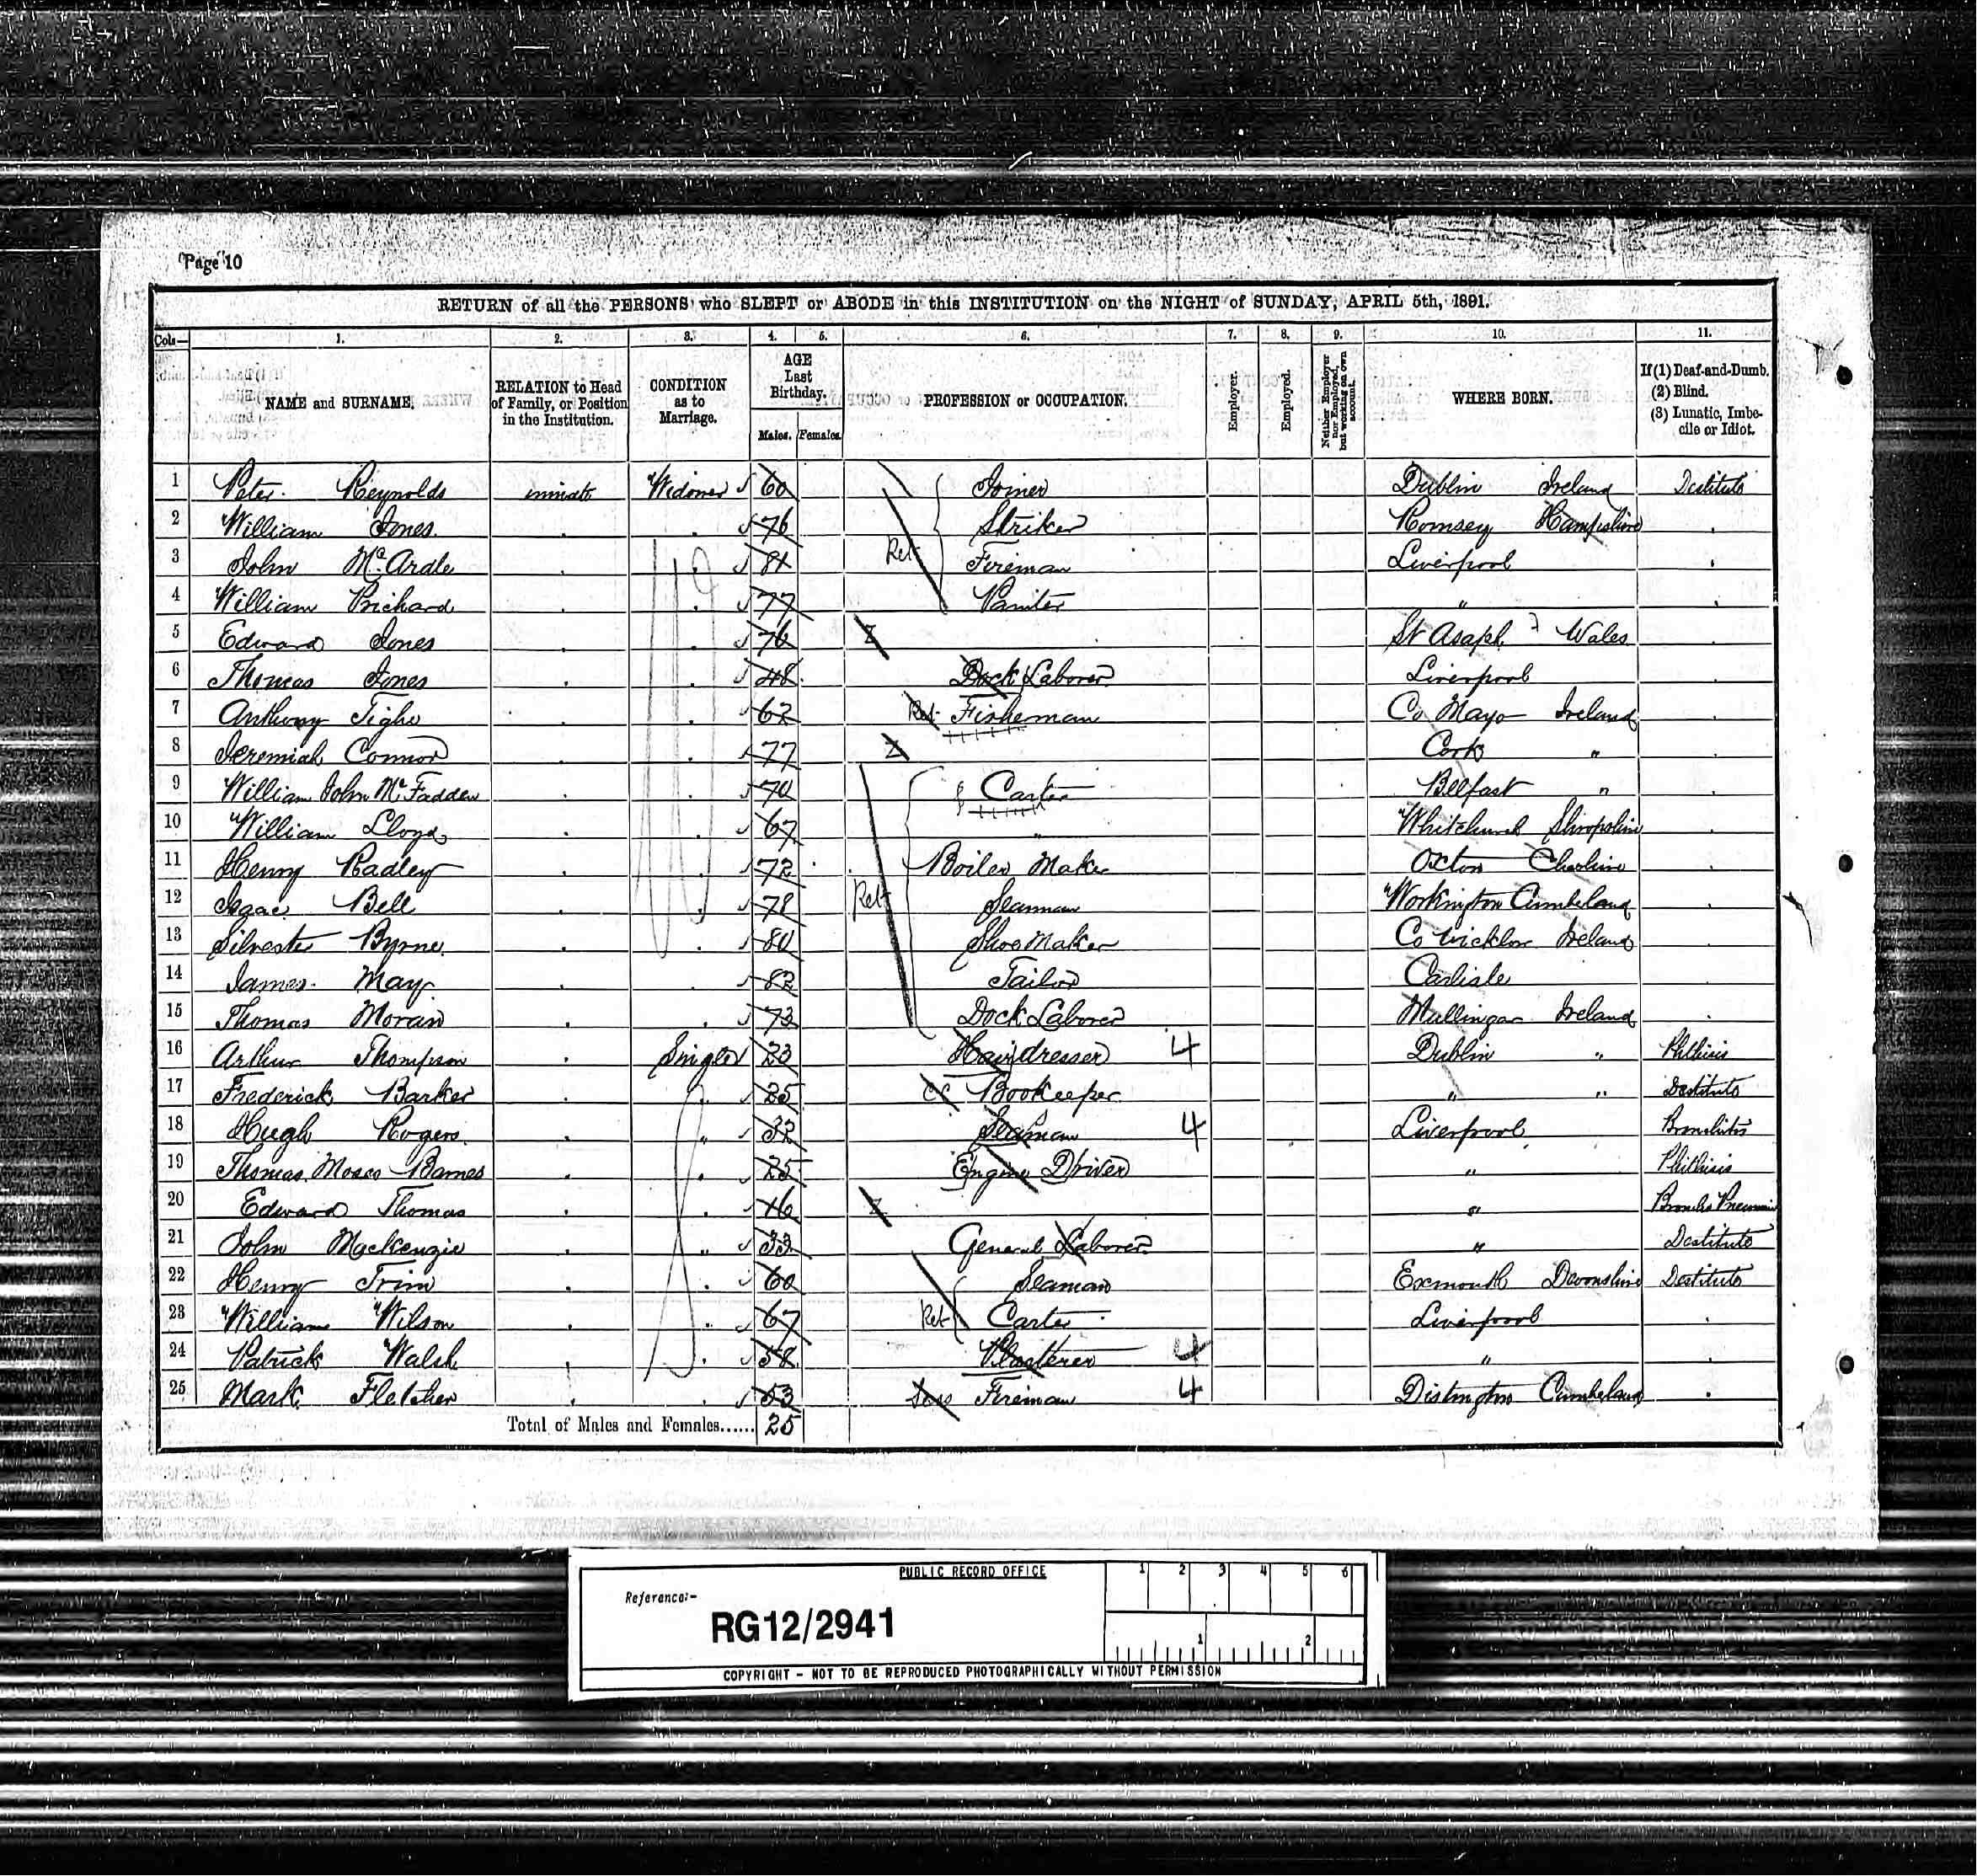 Page 10
RETURN of all the PERSONS who SLEPT or ABODE in this INSTITUTION on the NIGHT of SUNDAY, APRIL 5th, 1891.
Cols— 1. 2. 3. 4. 5. 6. 7. 8. 9. 10. 11.
NAME and SURNAME. RELATION to Head of Family, or Position in the Institution. CONDITION as to Marriage. AGE Last Birthday. Males. Females. PROFESSION or OCCUPATION. Employer. Employed. Neither Employer nor Employed, but working on own account. WHERE BORN. If (1) Deaf-and-Dumb. (2) Blind. (3) Lunatic, Imbecile or Idiot.
1 Peter Reynolds inmate Widower 60 Joiner Dublin Ireland Destitute
2 William Jones . . 76 Striker Romsey Hampshire .
3 John Mc Ardle . . Ret Fireman Liverpool .
4 William Prichard . . 77 Painter " .
5 Edward Jones . . 76 St Asaph Wales .
6 Thomas Jones . . 48 Dock Laborer Liverpool .
7 Anthony Tighe . . 62 Ret Fisherman Co Mayo Ireland .
8 Jeremiah Connor . . 77 Cork " .
9 William John McFadden . . 70 Carter Belfast " .
10 William Lloyd . . 67 " Whitchurch Shropshire .
11 Henry Radley . . 72 Boiler Maker Oxton Cheshire .
12 Isaac Bell . . 78 Ret Seaman Workington Cumberland .
13 Silvester Byrne . . 80 Shoe Maker Co Wicklow Ireland .
14 James May . . 82 Tailor Carlisle .
15 Thomas Moran . . 73 Dock Laborer Mullingar Ireland .
16 Arthur Thompson . Single 23 Hairdresser 4 Dublin " Phthisis
17 Frederick Barker . " 25 Bookeeper " " Destitute
18 Hugh Rogers . " 32 Seaman 4 Liverpool Bronchitis
19 Thomas Moses Barnes . . 25 Engine Driver " Phthisis
20 Edward Thomas . . 16 " Broncho Pneumonia
21 John Mackenzie . " 33 General Laborer " Destitute
22 Henry Trim . . 60 Seaman Exmouth Devonshire Destitute
23 William Wilson . . 67 Ret Carter Liverpool .
24 Patrick Walsh . . 58 Plasterer 4 " .
25 Mark Fletcher . . 53 Fireman 4 Distington Cumberland .
Total of Males and Females...... 25
PUBLIC RECORD OFFICE
1 2 3 4 5 6
Reference:-
RG12/2941
1 2
COPYRIGHT - NOT TO BE REPRODUCED PHOTOGRAPHICALLY WITHOUT PERMISSION